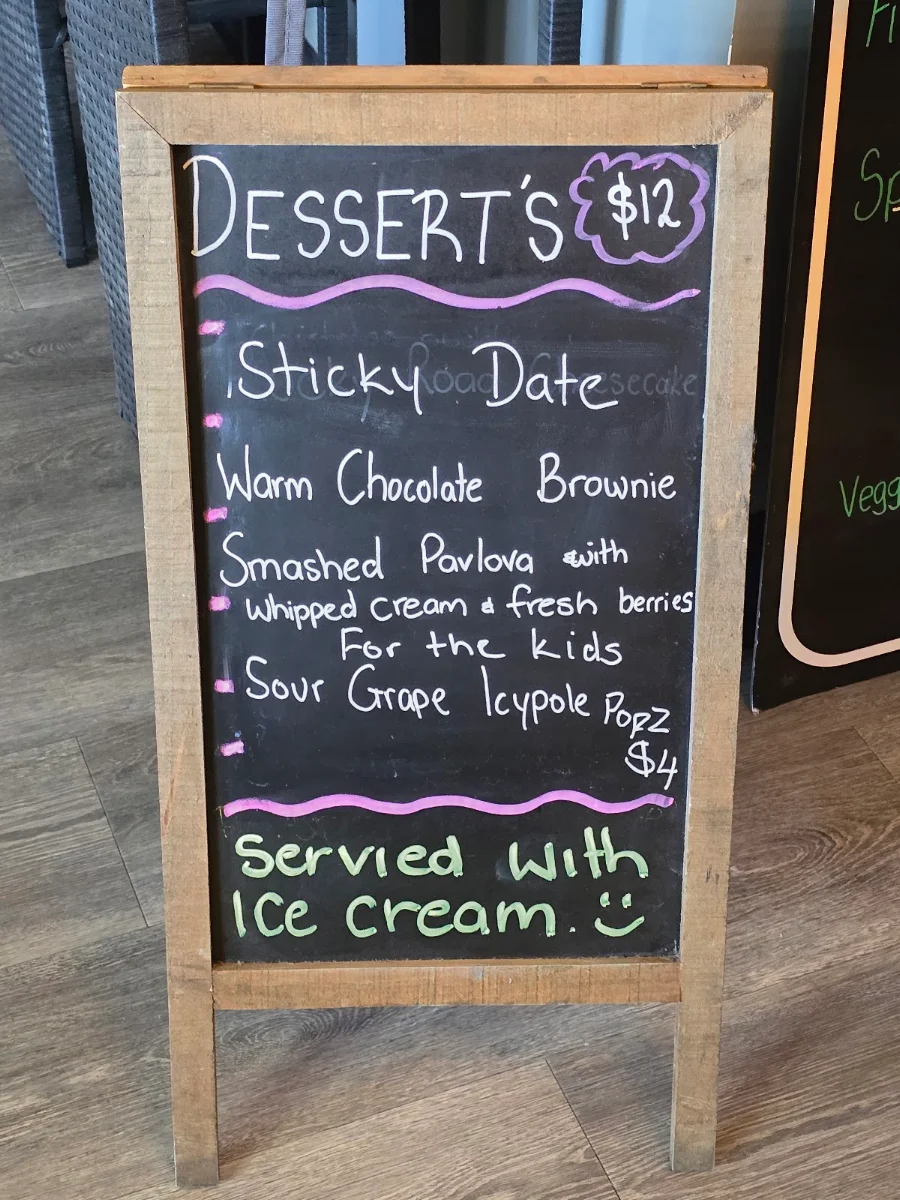 DESSERT'S $12
Sticky Date
Road Cheesecake
Warm Chocolate Brownie
Smashed Pavlova with
whipped cream & fresh berries
For the kids
Sour Grape Icypole Popz
$4
Servied with
Ice cream. :)
Fi
Sp
Vegg